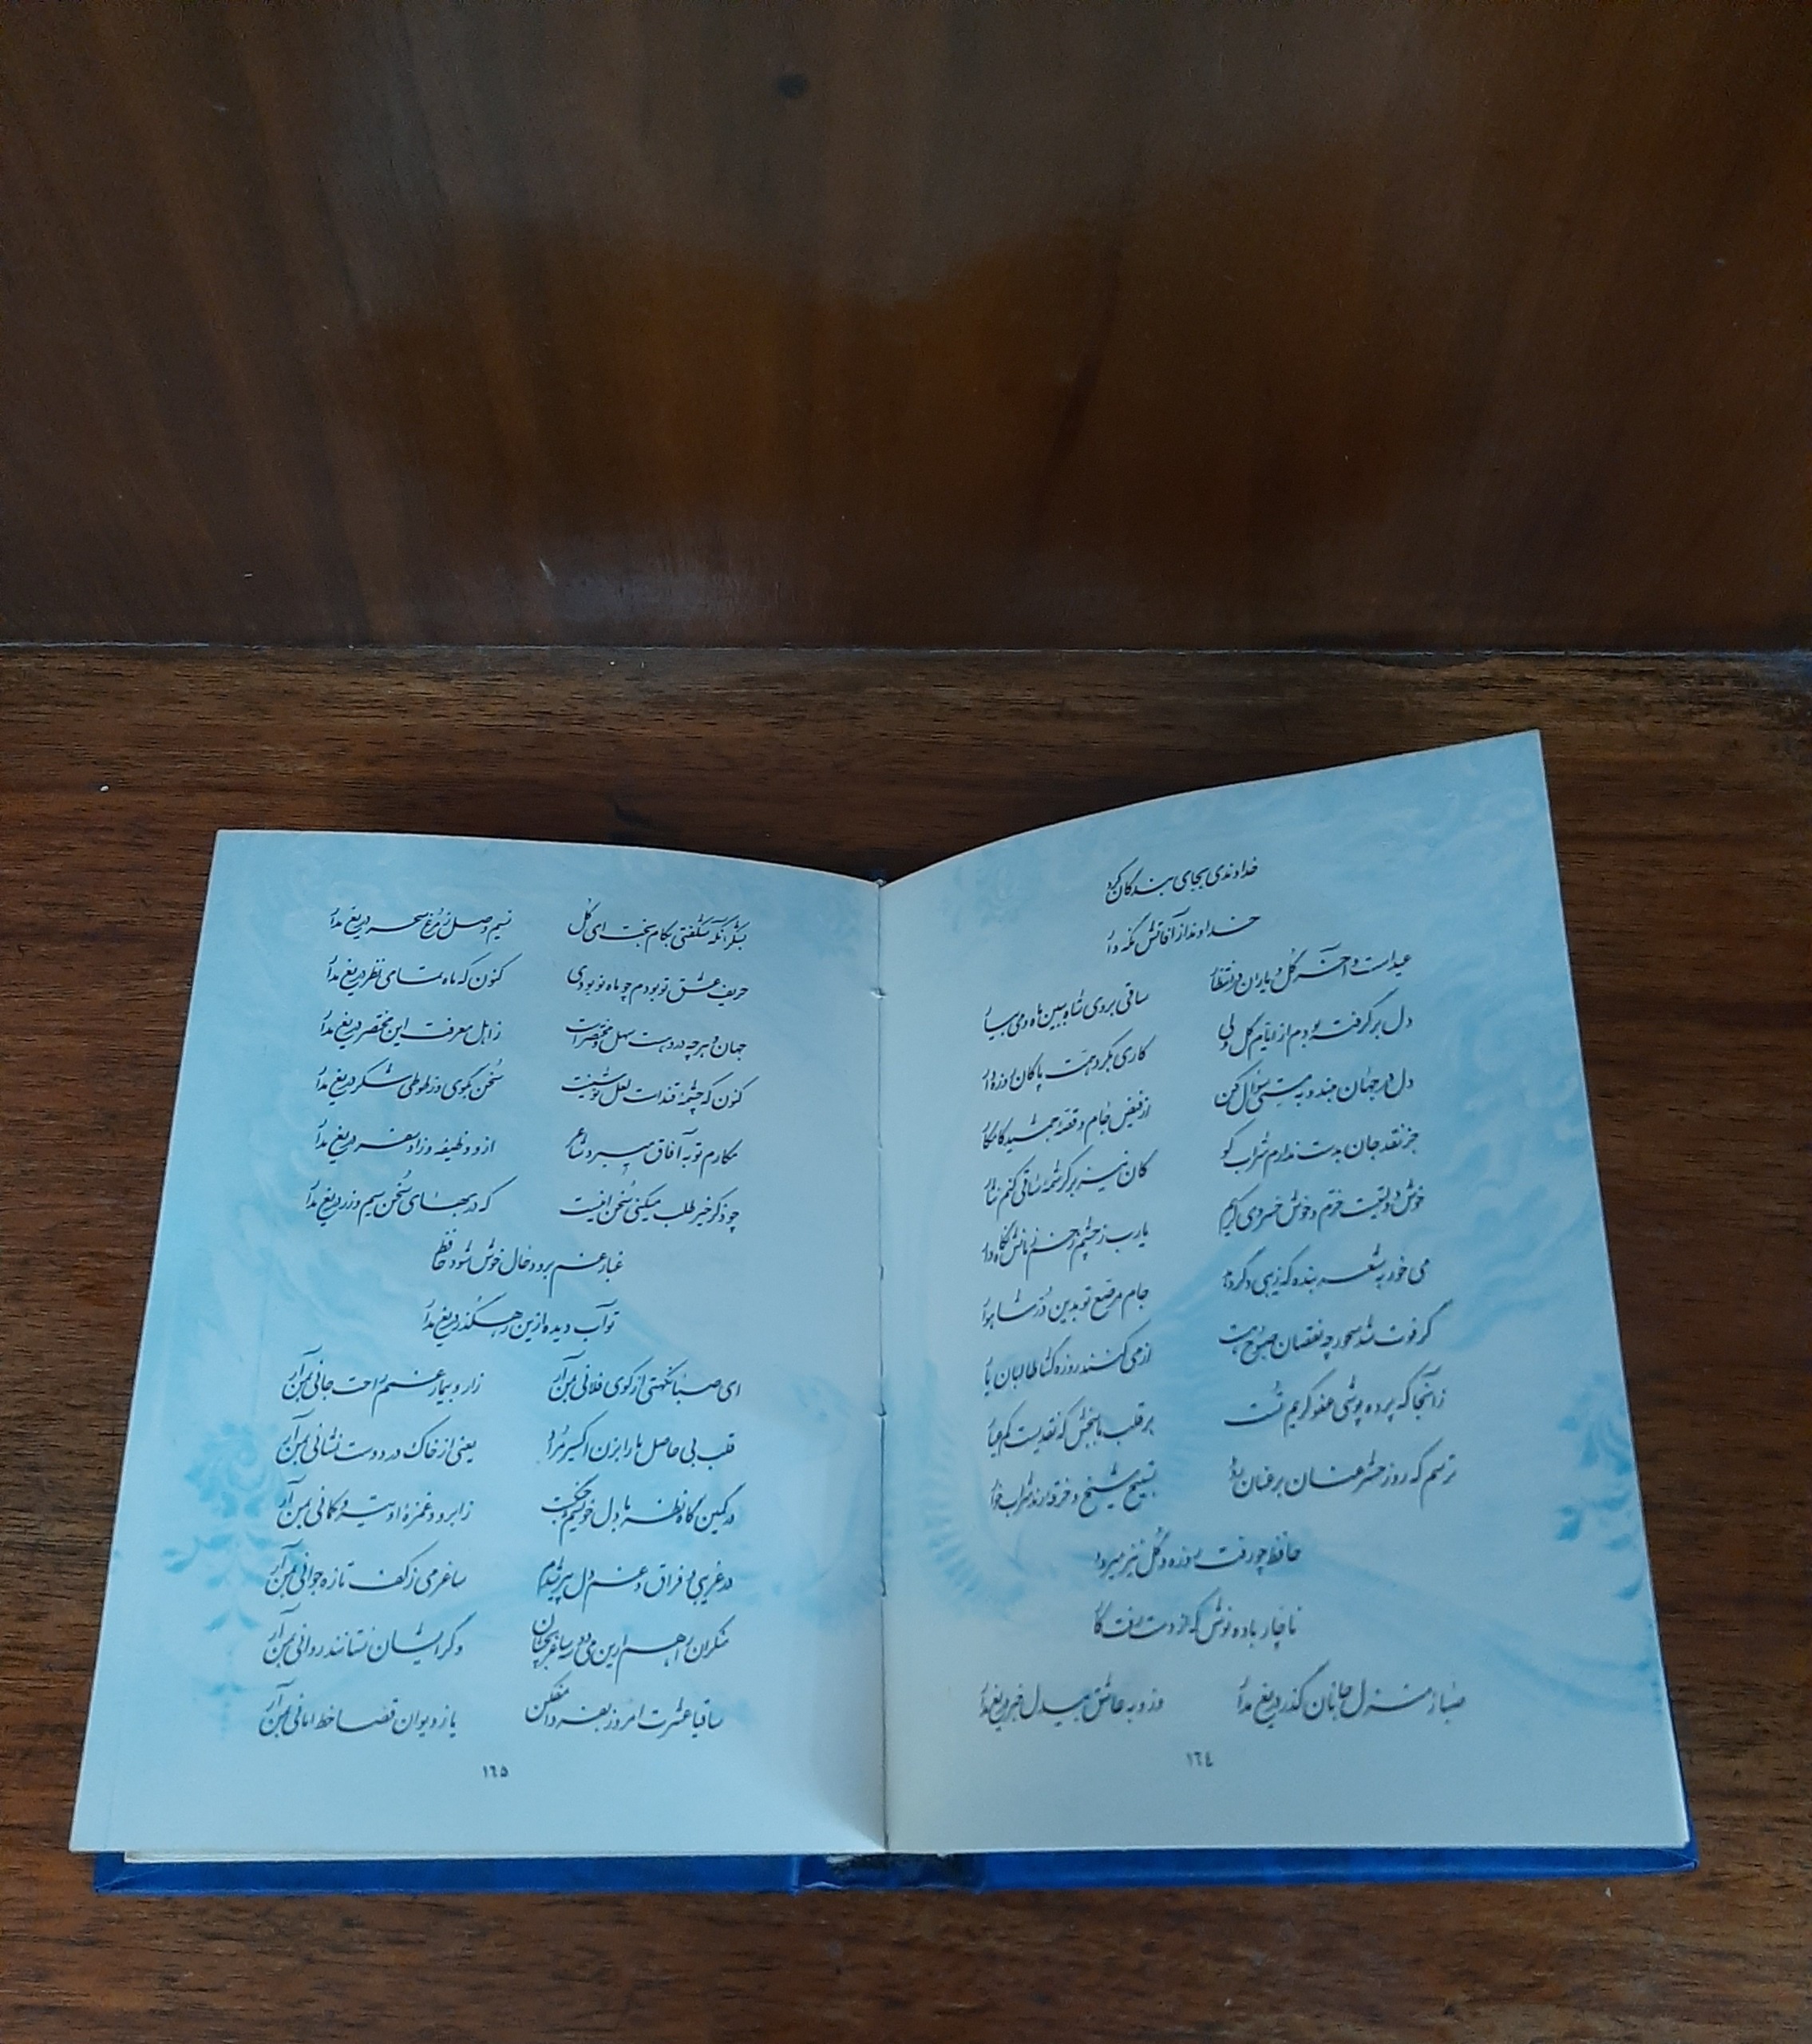 خداوندی بجای بندگان کرد
خداوندا ز آفاتش نگه دار
عید است و آخر گل و یاران در انتظار ساقی بروی شاه ببین ماه و می بیار
دل برگرفته بودم از ایام گل ولی کاری بکرد همت پاکان روزه دار
دل در جهان مبند و به مستی سؤال کن از فیض جام و قصهٔ جمشید کامکار
جز نقد جان بدست ندارم شراب کو کان نیز بر کرشمهٔ ساقی کنم نثار
خوش دولتیست خرم و خوش خسروی کریم یارب ز چشم زخم زمانش نگاه دار
می خور به شعر بنده که زیبی دگر دهد جام مرصع تو بدین در شاهوار
گر فوت شد سحور چه نقصان صبوح هست از می کنند روزه گشا طالبان یار
زانجا که پرده پوشی عفو کریم تست بر قلب ما ببخش که نقدیست کم عیار
ترسم که روز حشر عنان بر عنان رود تسبیح شیخ و خرقهٔ رند شرابخوار
حافظ چو رفت روزه و گل نیز میرود
ناچار باده نوش که از دست رفت کار
صبا ز منزل جانان گذر دریغ مدار وز و به عاشق بیدل خبر دریغ مدار
١٦٤
بشکر آنکه شگفتی بکام بخت ای گل نسیم وصل ز مرغ سحر دریغ مدار
حریف عشق تو بودم چو ماه نو بودی کنون که ماه تمامی نظر دریغ مدار
جهان و هر چه در و هست سهل و مختصر است ز اهل معرفت این مختصر دریغ مدار
کنون که چشمهٔ قند است لعل نوشینت سخن بگوی و ز طوطی شکر دریغ مدار
مکارم تو به آفاق میبرد شاعر ازو وظیفه و زاد سفر دریغ مدار
چو ذکر خیر طلب میکنی سخن اینست که در بهای سخن سیم و زر دریغ مدار
غبار غم برود حال خوش شود حافظ
تو آب دیده ازین رهگذر دریغ مدار
ای صبا نکهتی از کوی فلانی بمن آر زار و بیمار غمم راحت جانی بمن آر
قلب بی حاصل ما را بزن اکسیر مراد یعنی از خاک در دوست نشانی بمن آر
در کمین گاه نظر با دل خویشم جنگست ز ابرو و غمزهٔ او تیر و کمانی بمن آر
در غریبی و فراق و غم دل پیر شدم ساغر می ز کف تازه جوانی بمن آر
منکران را هم ازین می دو سه ساغر بچشان و گر ایشان نستانند روانی بمن آر
ساقیا عشرت امروز بفردا مفکن یا ز دیوان قضا خط امانی بمن آر
١٦۵